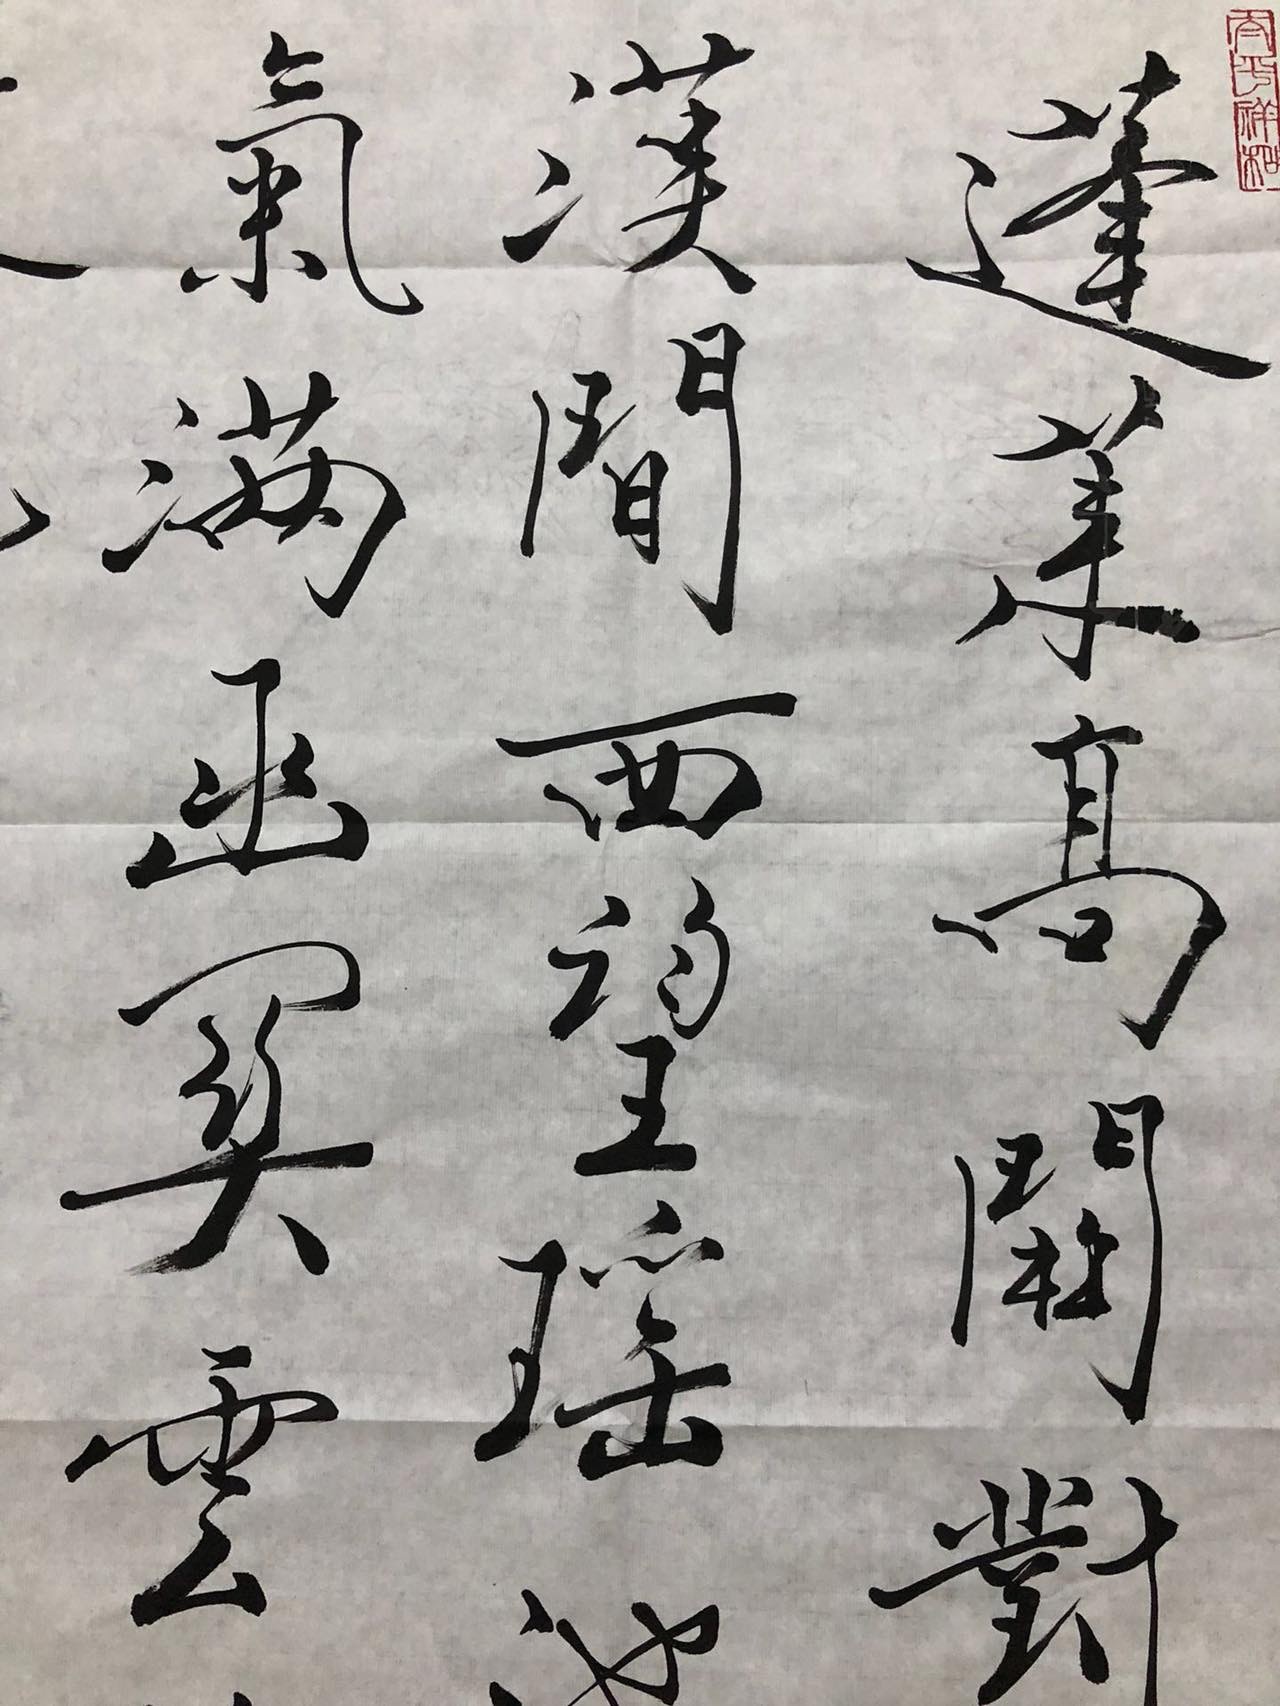 太平祥和
蓬萊高闕對
漢間西望瑤池
氣滿函關雲